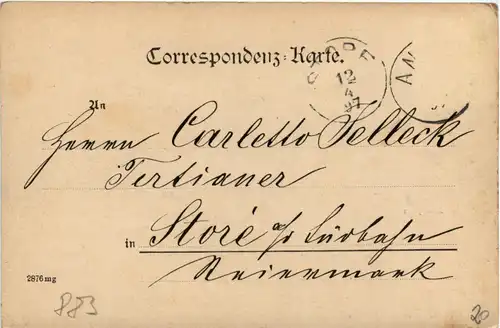 Correspondenz-Karte.
STORÉ
12
4
97
AM
An
Herrn Carletto Selleck
Tertianer
in Storé a/d Südbahn
Steiermark
2876mg
883
20